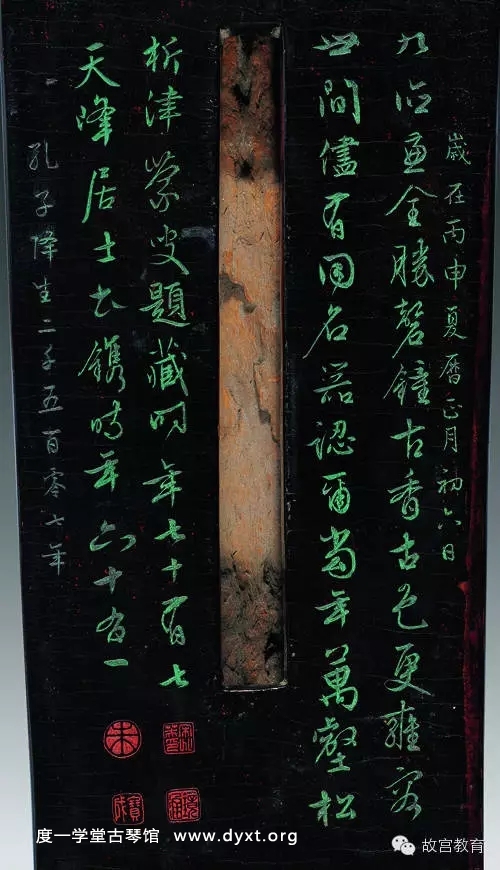 歲在丙申夏曆正月初六日
九德兼全勝磬鐘古香古色更雍容
世間儘有同名器認爾當年萬壑松
析津蒙叟題藏時年七十有七
天峰居士書鐫時年六十有一
孔子降生二千五百零七年
朱
度一学堂古琴馆 www.dyxt.org
故宫教育